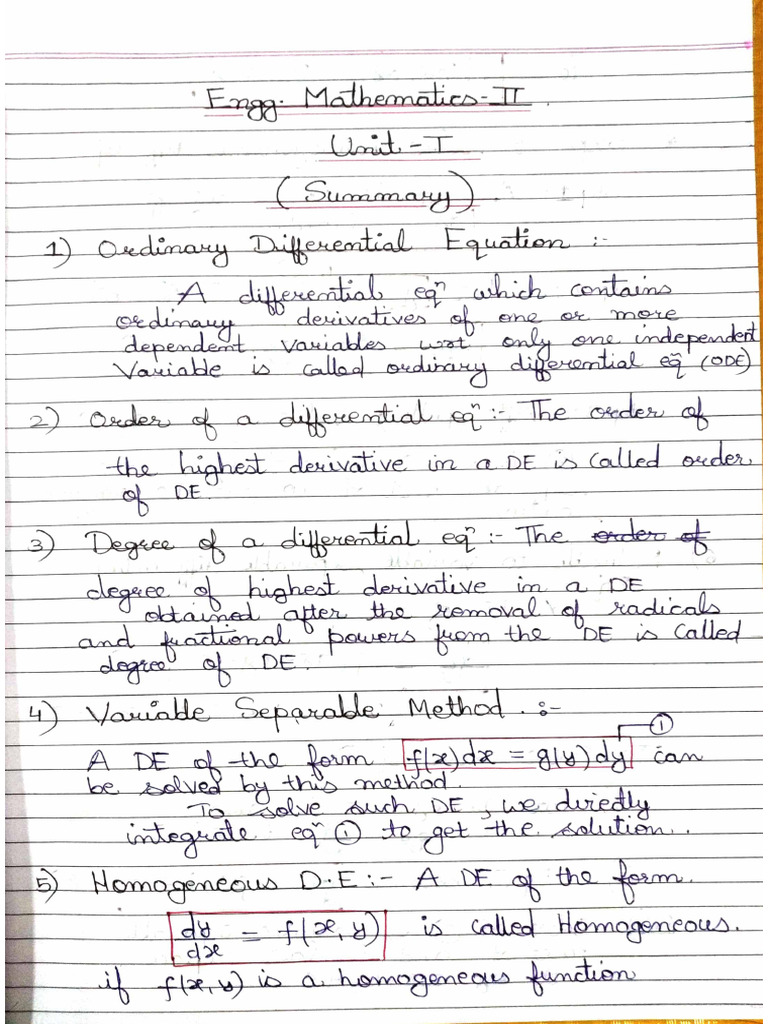 Engg. Mathematics-II.
Unit-I
(Summary).
1) Ordinary Differential Equation :-
A differential eqⁿ which contains
ordinary derivatives of one or more
dependent variables wrt only one independent
Variable is called ordinary differential eqⁿ (ODE)
2) Order of a differential eqⁿ :- The order of
the highest derivative in a DE is called order
of DE.
3) Degree of a differential eqⁿ :- The order of
degree of highest derivative in a DE
obtained after the removal of radicals
and fractional powers from the DE is called
degree of DE.
4) Variable Separable Method. :-
①
A DE of the form f(x)dx = g(y)dy can
be solved by this method.
To solve such DE, we directly
integrate eqⁿ ① to get the solution..
5) Homogeneous D.E :- A DE of the form.
dy/dx = f(x, y) is called Homogeneous.
if f(x, y) is a homogeneous function